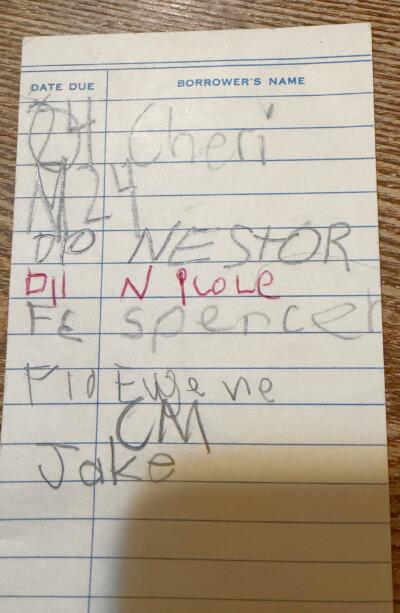 DATE DUE BORROWER'S NAME
Cheri
M24
D10 NEStOR
D11 NicoLe
spencer
F10 Eugene
CM
Jake